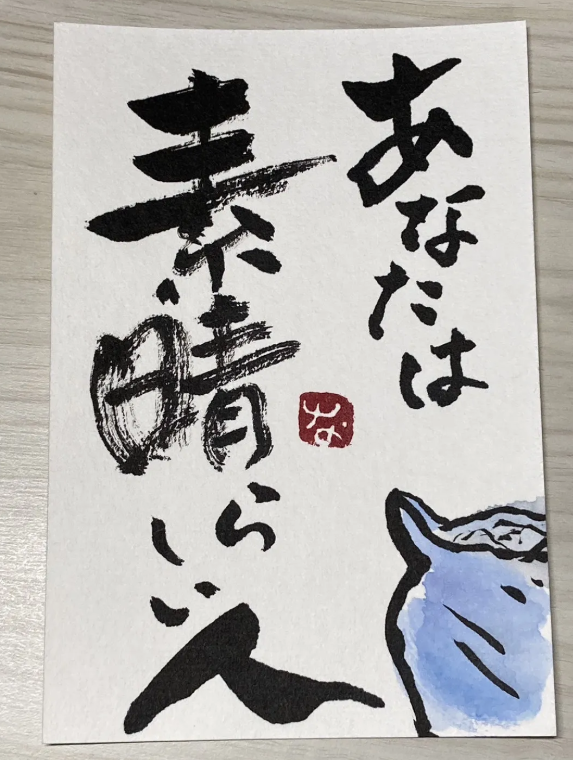 あなたは
素晴らしい人